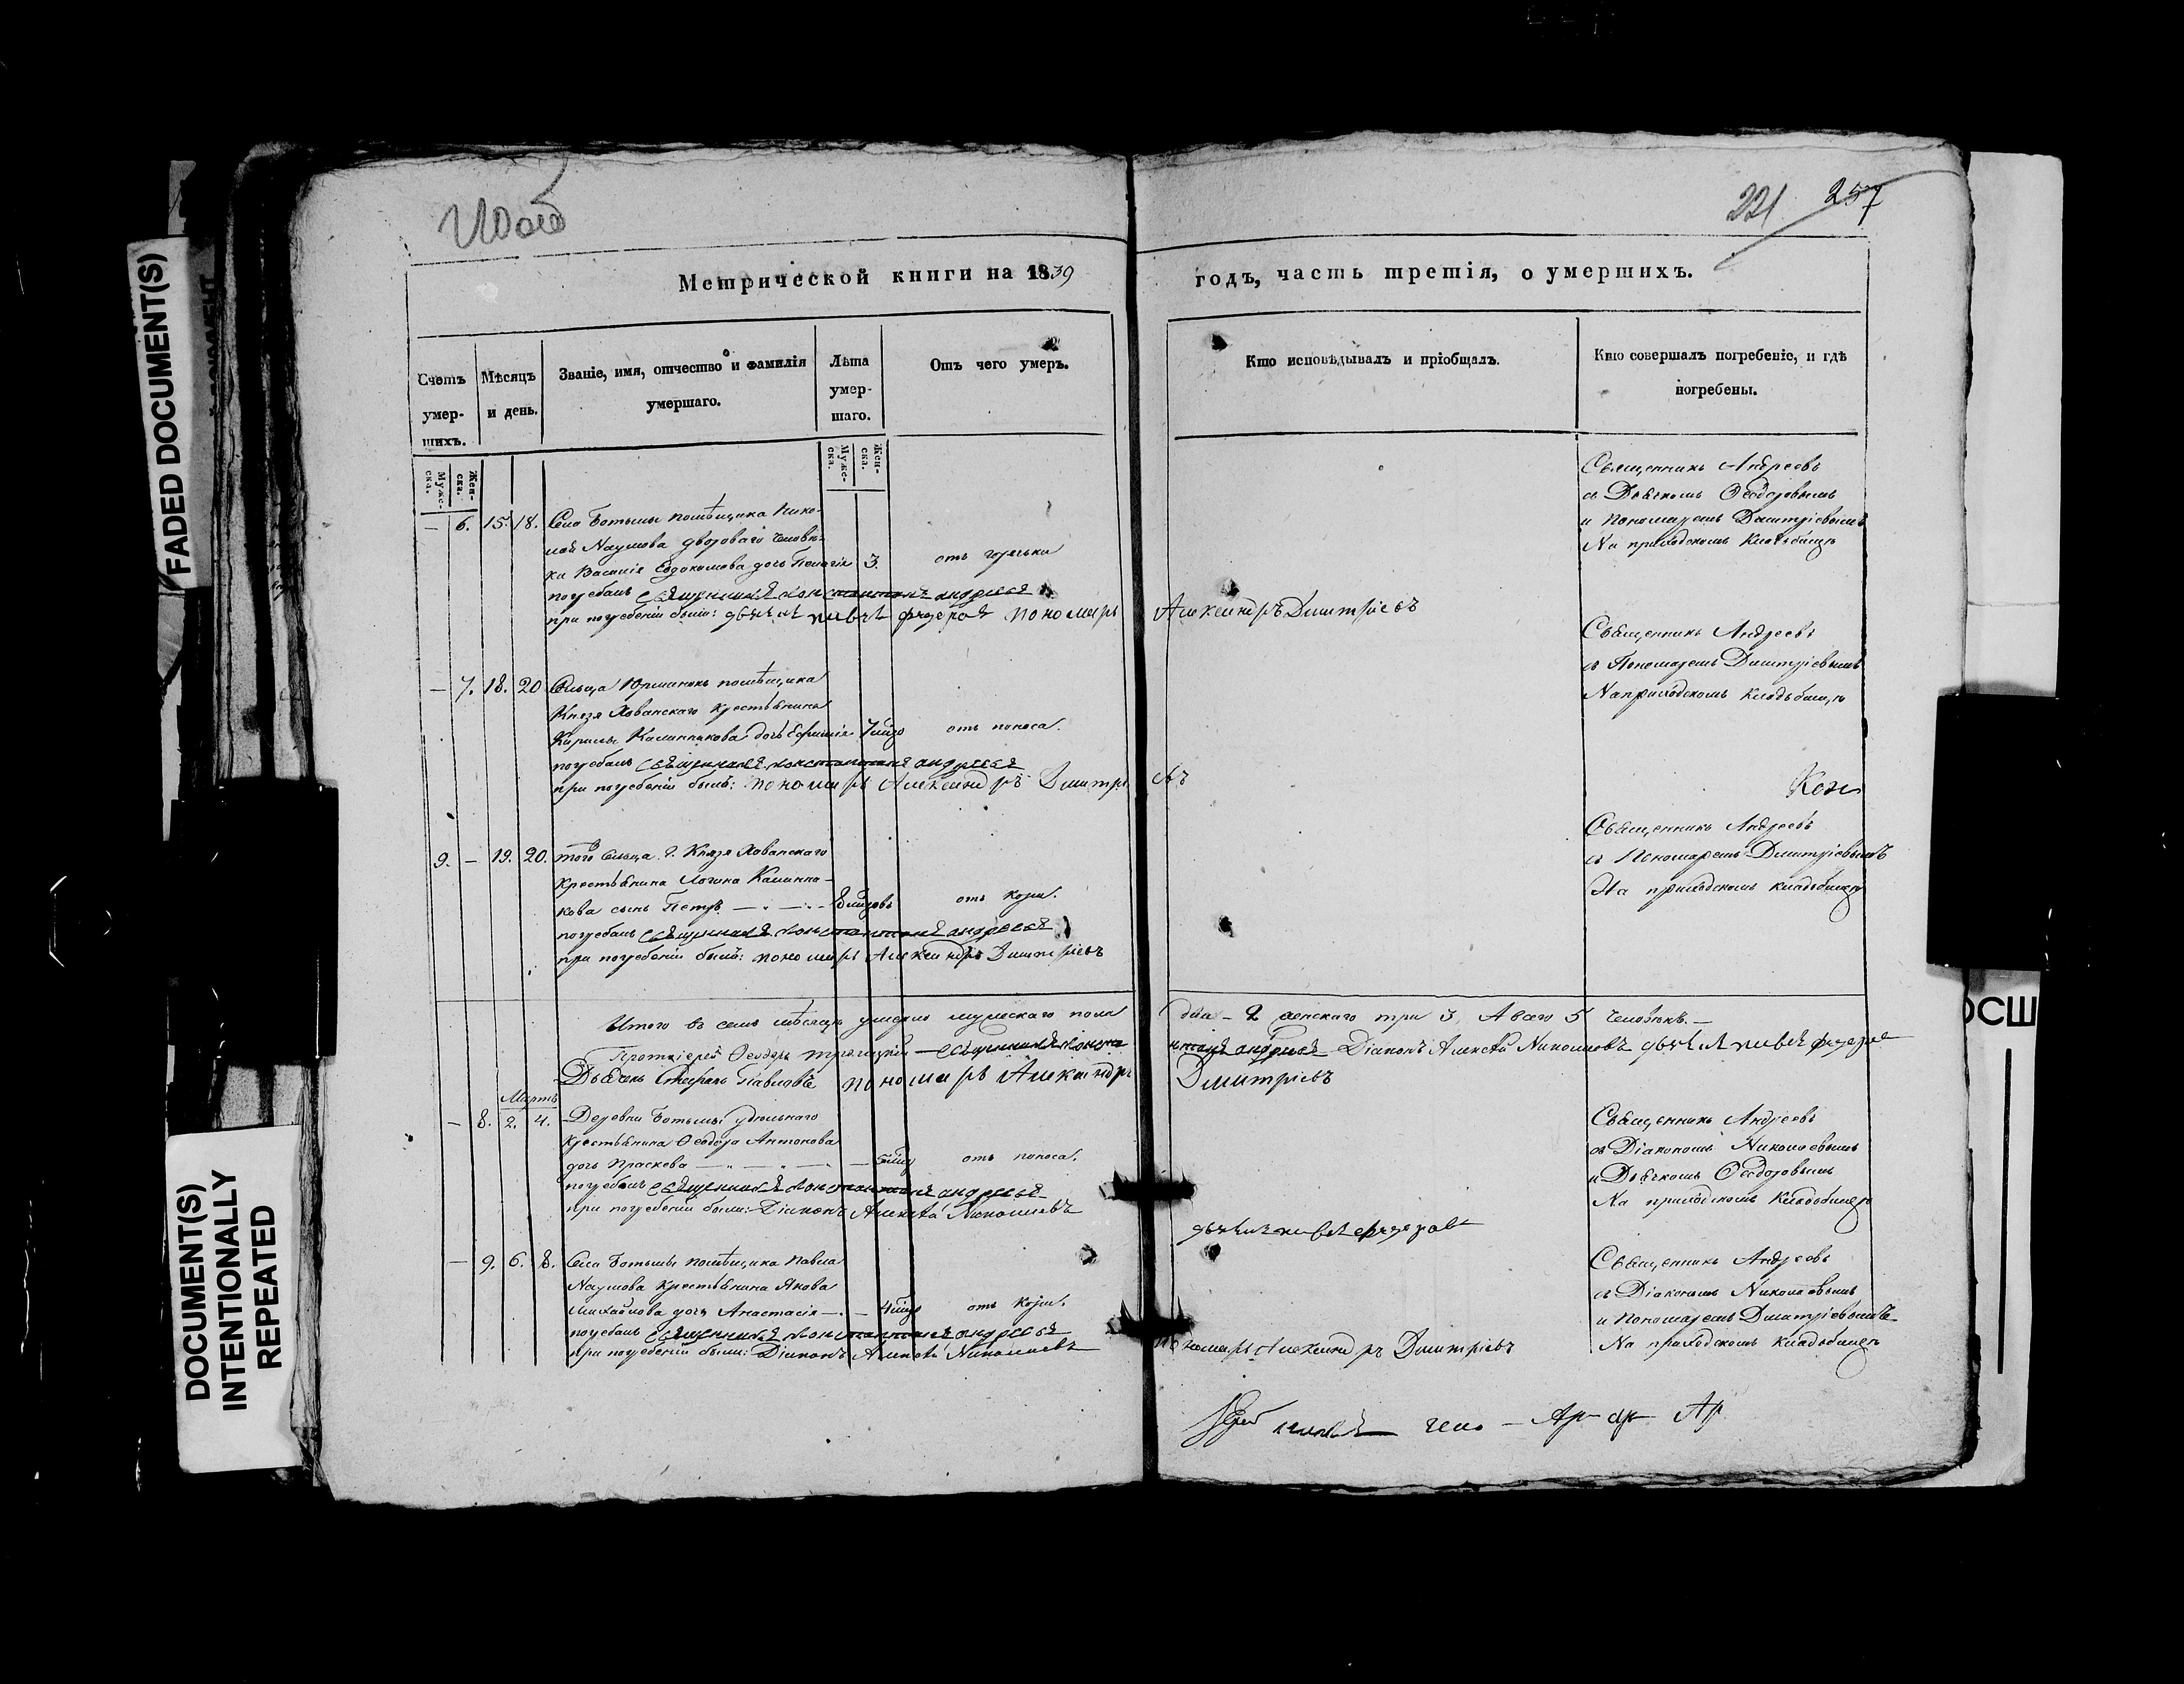 221 257
Метрической книги на 1839
годъ, часть третія, о умершихъ.
Счетъ умер-шихъ.
Мѣсяцъ и день.
Званіе, имя, отчество и фамилія умершаго.
Лѣта умер-шаго.
Отъ чего умеръ.
Кто исповѣдывалъ и пріобщалъ.
Кто совершалъ погребеніе, и гдѣ погребены.
Муже-ска.
Жен-ска.
Муже-ска.
Жен-ска.
— 6. 15. 18. Села Ботьмы помѣщика Нико-
лая Наумова двороваго человѣ-
ка Василія Евдокимова дочь Пелагія 3. отъ горячки
погребалъ священникъ Константинъ Андреевъ
при погребеніи были: дьячекъ Федоровъ пономарь Александръ Дмитріевъ
Священникъ Андреевъ
съ Дьячкомъ Ѳеодоровымъ
и Пономаремъ Дмитріевымъ
На приходскомъ кладбищѣ
— 7. 18. 20 Сельца помѣщика
Князя Хованскаго крестьянина
Кирилы Калинникова дочь 7 мцо отъ поноса.
погребалъ священникъ Константинъ Андреевъ
при погребеніи былъ: пономарь Александръ Дмитріевъ
Священникъ Андреевъ
съ Пономаремъ Дмитріевымъ
На приходскомъ кладбищѣ
9. — 19. 20. того сельца Г. Князя Хованскаго
крестьянина Логина Калинни-
кова сынъ Петръ 8 мцовъ отъ кори.
погребалъ священникъ Константинъ Андреевъ
при погребеніи былъ: пономарь Александръ Дмитріевъ
Священникъ Андреевъ
съ Пономаремъ Дмитріевымъ
На приходскомъ кладбищѣ
Итого въ семъ мѣсяцѣ умерло мужескаго пола два – 2 женскаго три 3, А всего 5 человѣкъ. —
Протоіерей Ѳеодоръ Троицкій священникъ Константинъ Андреевъ Діаконъ Алексѣй Николаевъ
Дьячекъ Стефанъ Павловъ пономарь Александръ Дмитріевъ
Мартъ
— 8. 2. 4. Деревни Ботьмы удѣльнаго
крестьянина Ѳеодора Антонова
дочь Праскева — 5 мцо отъ поноса.
погребалъ священникъ Константинъ Андреевъ
при погребеніи были: Діаконъ Алексѣй Николаевъ
Священникъ Андреевъ
съ Діакономъ Николаевымъ
и Дьячкомъ Ѳеодоровымъ
На приходскомъ кладбищѣ
— 9. 6. 8. Села Ботьмы помѣщика Павла
Наумова крестьянина Якова
Михайлова дочь Анастасія — 4 мцо отъ кори.
погребалъ священникъ Константинъ Андреевъ
при погребеніи были: Діаконъ Алексѣй Николаевъ пономарь Александръ Дмитріевъ
Священникъ Андреевъ
съ Діакономъ Николаевымъ
и Пономаремъ Дмитріевымъ
На приходскомъ кладбищѣ
FADED DOCUMENT(S)
DOCUMENT(S)
INTENTIONALLY
REPEATED